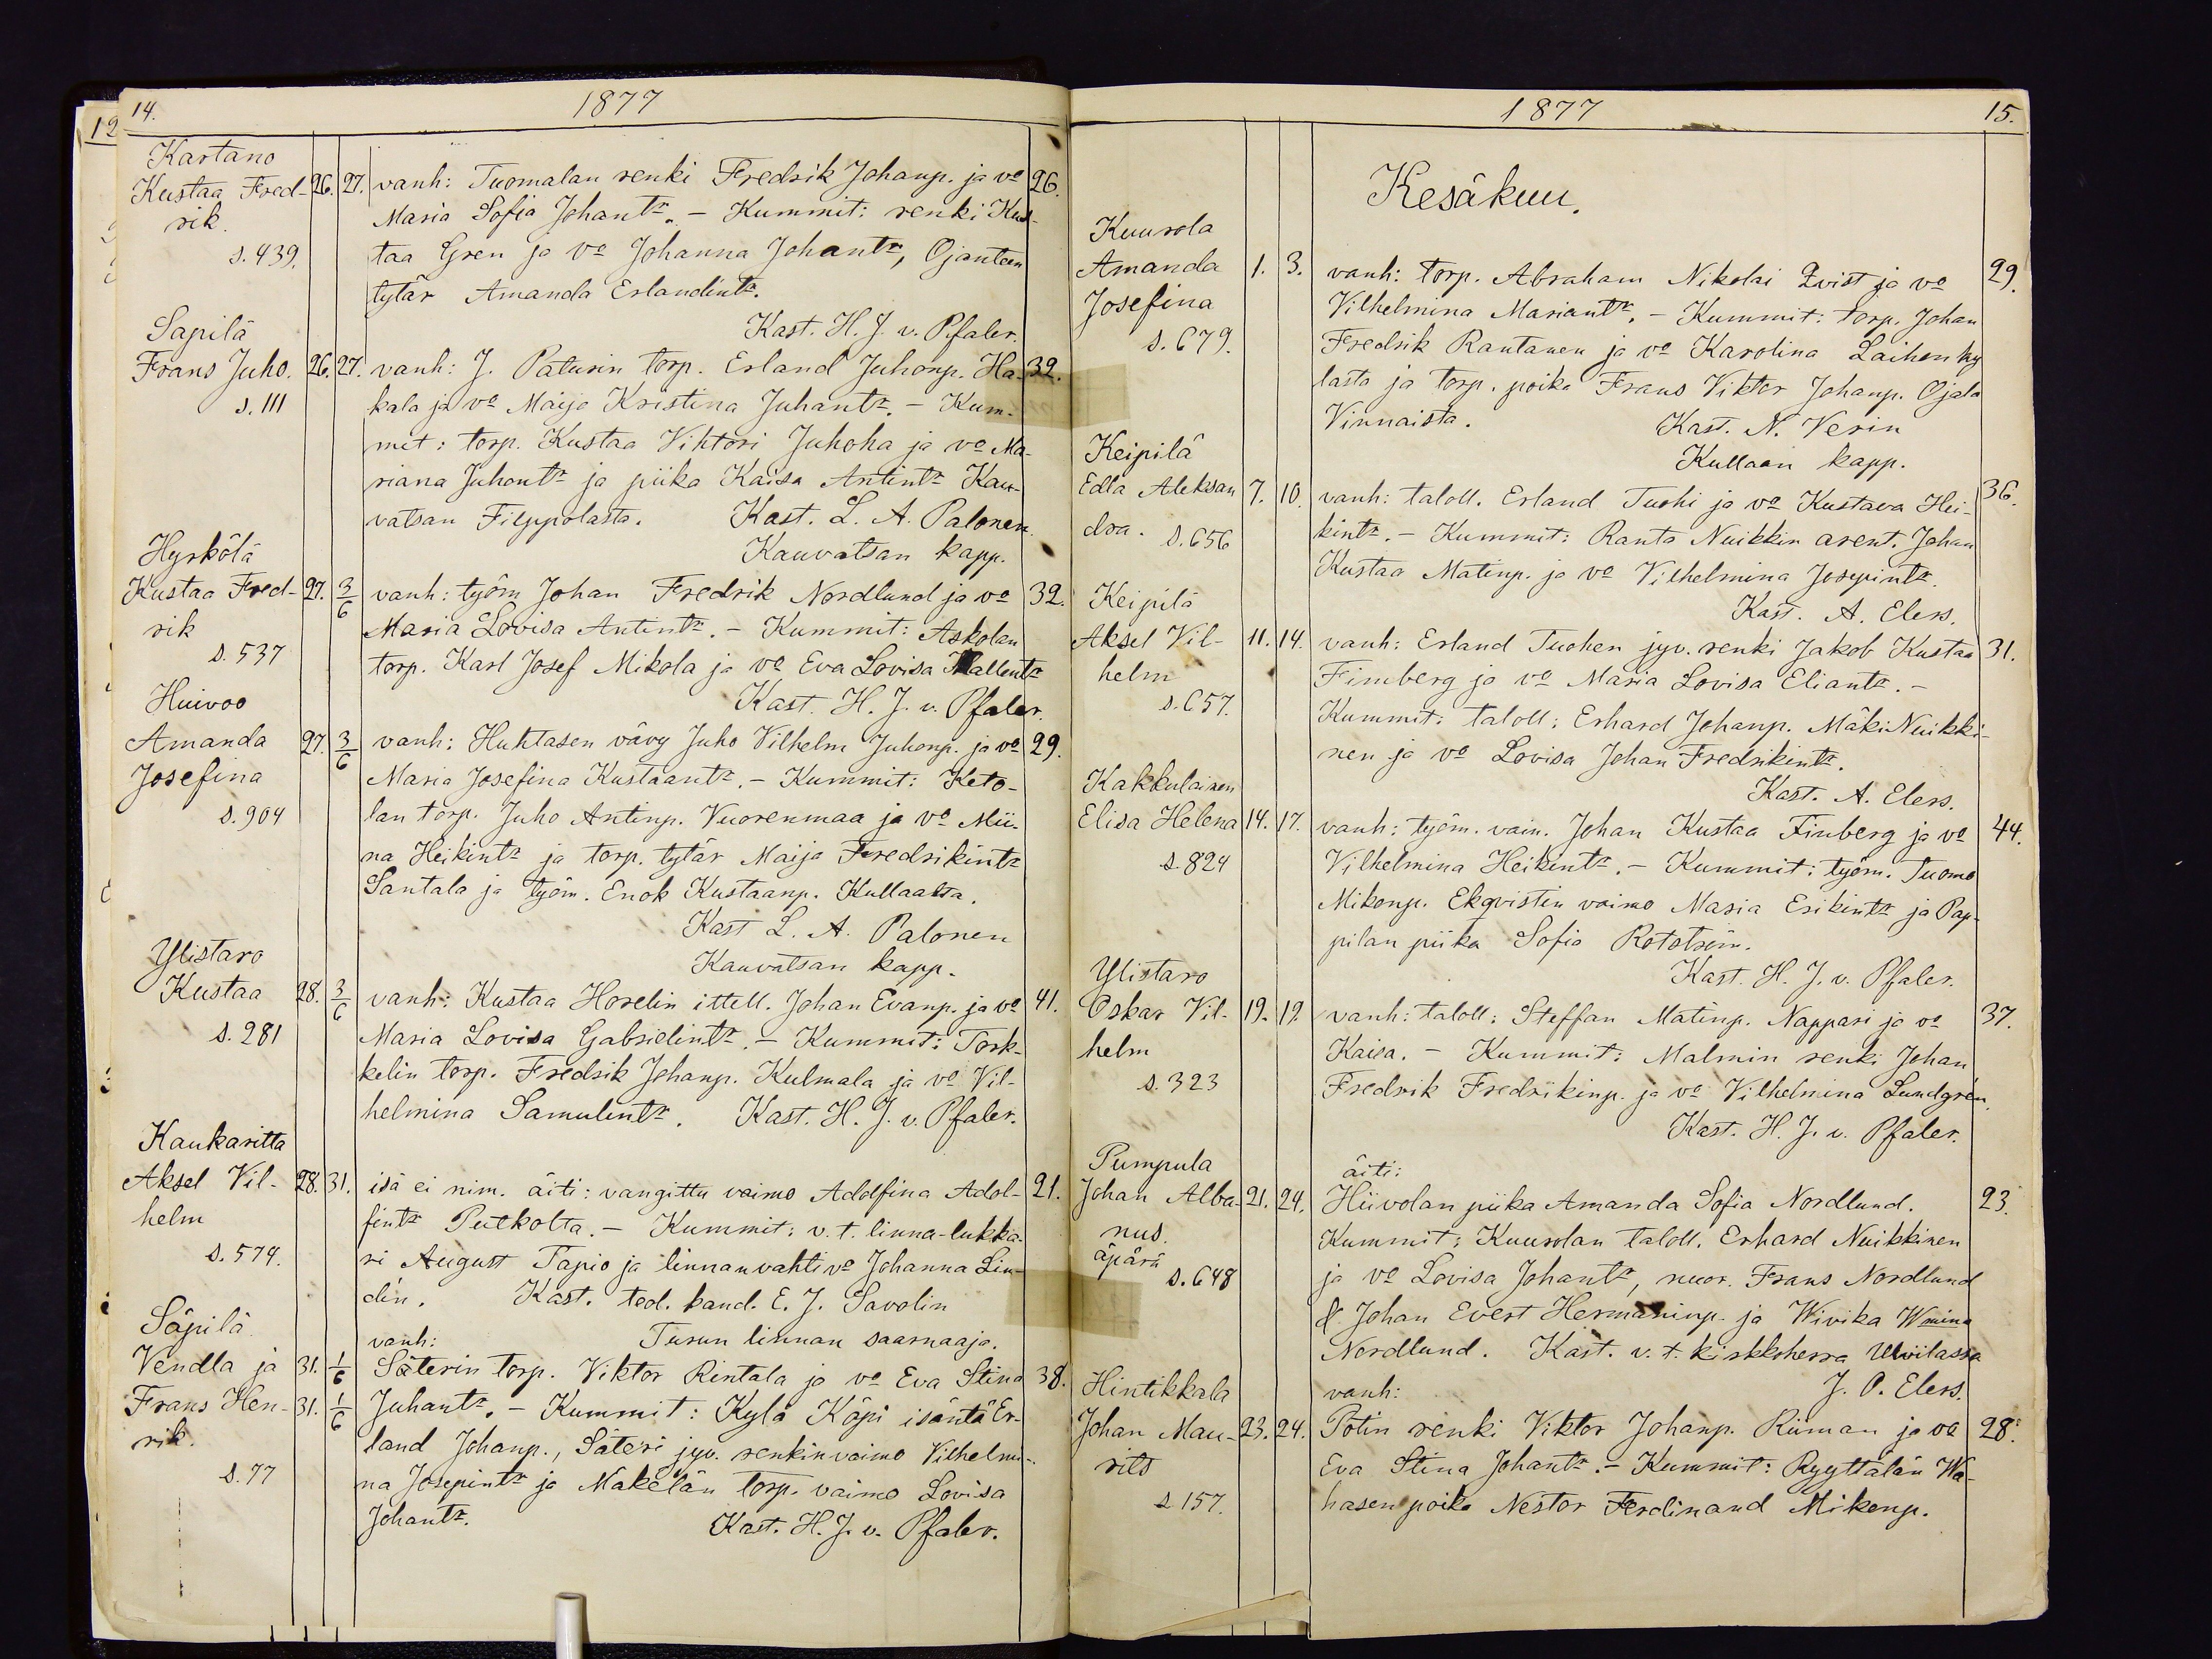 14.
1877
Kartano
Kustaa Fred- 26. 27. vanh: Tuomalan renki Fredrik Johanp. ja vo 26.
rik. Maria Sofia Johantr. – Kummit: renki Kus-
s. 439. taa Gren ja vo Johanna Johantr, Ojanteen
tytär Amanda Erlandintr.
Kast. H. J. v. Pfaler.
Sapilä
Frans Juho. 26. 27. vanh: J. Paturin torp. Erland Juhonp. Ha- 32.
s. 111 kala ja vo Maija Kristina Juhantr. – Kum-
mit: torp. Kustaa Vihtori Juhoha ja vo Ma-
riana Juhontr ja piika Kaisa Antintr Kau-
vatsan Filppolasta. Kast. L. A. Palonen
Kauvatsan kapp.
Hyrkölä
Kustaa Fred- 27. 3/6 vanh: työm Johan Fredrik Nordlund ja vo 32.
rik Maria Lovisa Antintr. – Kummit: Askolan
s. 537 torp. Karl Josef Mikola ja vo Eva Lovisa Kallentr
Kast. H. J. v. Pfaler.
Huivoo
Amanda 27. 3/6 vanh: Huhtasen vävy Juho Vilhelm Juhonp. ja vo 29.
Josefina Maria Josefina Kustaantr. – Kummit: Keto-
s. 904 lan torp. Juho Antinp. Vuorenmaa ja vo Mii-
na Heikintr ja torp. tytär Maija Fredrikintr
Santala ja työm. Enok Kustaanp. Kullaalta.
Kast L. A. Palonen
Kauvatsan kapp.
Ylistaro
Kustaa 28. 3/6 vanh: Kustaa Horelin ittell. Johan Evanp. ja vo 41.
s. 281 Maria Lovisa Gabrielintr. – Kummit: Tork-
kelin torp. Fredrik Johanp. Kulmala ja vo Vil-
helmina Samulintr. Kast. H. J. v. Pfaler.
Kaukaritta
Aksel Vil- 28. 31. isä ei nim. äiti: vangittu vaimo Adolfina Adol- 21.
helm fintr Putkolta. – Kummit: v. t. linna-lukka-
s. 574. ri August Tapio ja linnanvahti vo Johanna Lin-
dén. Kast. teol. kand. E. J. Savolin
Turun linnan saarnaaja.
Säpilä vanh:
Vendla ja 31. 1/6 Säterin torp. Viktor Rintala ja vo Eva Stina 38.
Frans Hen- 31. 1/6 Juhantr. – Kummit: Kylä Käpi isäntä Er-
rik. land Johanp., Säteri jyv. renkinvaimo Vilhelmi-
s. 77 na Josepintr ja Mäkelän torp. vaimo Lovisa
Johantr. Kast. H. J. v. Pfaler.
1877
15.
Kesäkuu.
Kuurola
Amanda 1. 3. vanh: torp. Abraham Nikolai Qvist ja vo 29.
Josefina Vilhelmina Mariantr. – Kummit: torp. Johan
s. 679. Fredrik Rantanen ja vo Karolina Laihon ky
lästä ja torp. poika Frans Viktor Johanp. Ojala
Vinnaista. Kast. N. Verin
Kullaan kapp.
Keipilä
Edla Aleksan 7. 10. vanh: taloll. Erland Tuohi ja vo Kustava Hei- 36.
dra. s. 656 kintr. – Kummit: Ranta Nuikkin arent. Johan
Kustaa Matinp. ja vo Vilhelmina Josepintr.
Kast. A. Elers.
Keipilä
Aksel Vil- 11. 14. vanh: Erland Tuohen jyv. renki Jakob Kustaa 31.
helm Finberg ja vo Maria Lovisa Eliantr. –
s. 657. Kummit: taloll: Erhard Johanp. Mäki Nuikki-
nen ja vo Lovisa Johan Fredrikintr.
Kast. A. Elers.
Kakkulainen
Elisa Helena 14. 17. vanh: työm. vain. Johan Kustaa Finberg ja vo 44.
s. 824 Vilhelmina Heikintr. – Kummit: työm. Tuomo
Mikonp. Ekqvistin vaimo Maria Erikintr ja Pap-
pilan piika Sofia
Kast. H. J. v. Pfaler.
Ylistaro
Oskar Vil- 19. 19. vanh: taloll: Steffan Matinp. Nappari ja vo 37.
helm Kaisa. – Kummit: Malmin renki Johan
s. 323 Fredrik Fredrikinp. ja vo Vilhelmina Lundgrén.
Kast. H. J. v. Pfaler.
Pumpula äiti:
Johan Alba- 21. 24. Hiivolan piika Amanda Sofia Nordlund. 23.
nus. Kummit: Kuurolan taloll. Erhard Nuikkinen
äpärä s. 648 ja vo Lovisa Johantr, nuor. Frans Nordlund
& Johan Evert Hermaninp. ja Wivika Wmina
Nordlund. Kast. v. t. kirkkoherra Ulvilassa
J. P. Elers.
Hintikkala vanh:
Johan Mau- 23. 24. Potin renki Viktor Johanp. Riiman ja vo 28.
rits Eva Stina Johantr. – Kummit: Ryyttälän Wa-
s 157. hasen poika Nestor Ferdinand Mikonp.